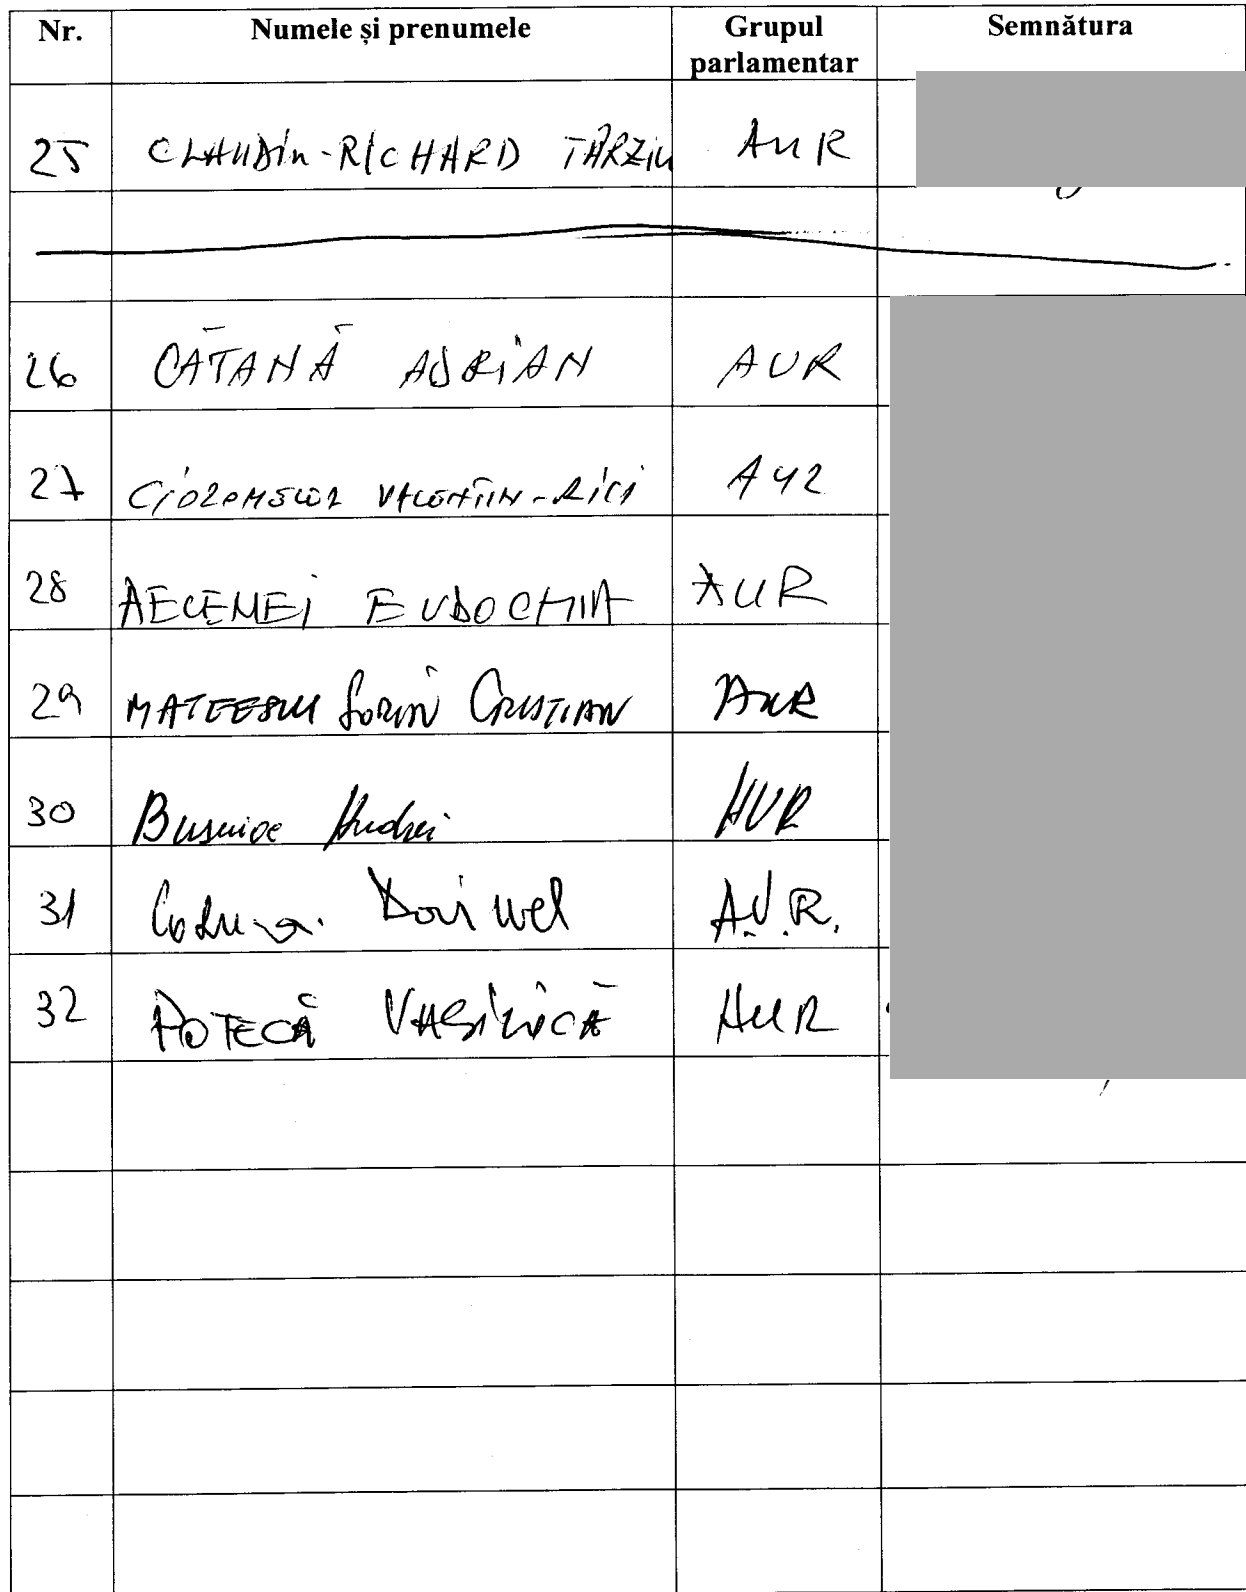 Nr. Numele și prenumele Grupul parlamentar Semnătura
25 CLAUDIU-RICHARD TÂRZIU AUR
26 CĂTANĂ ADRIAN AUR
27 VALENTIN-RICI AUR
28 AELENEI EUDOCHIA AUR
29 MATEESCU SORIN CRISTIAN AUR
30 Busuioc Andrei AUR
31 Codru Dorinel A.U.R.
32 POTECĂ VASILICĂ AUR